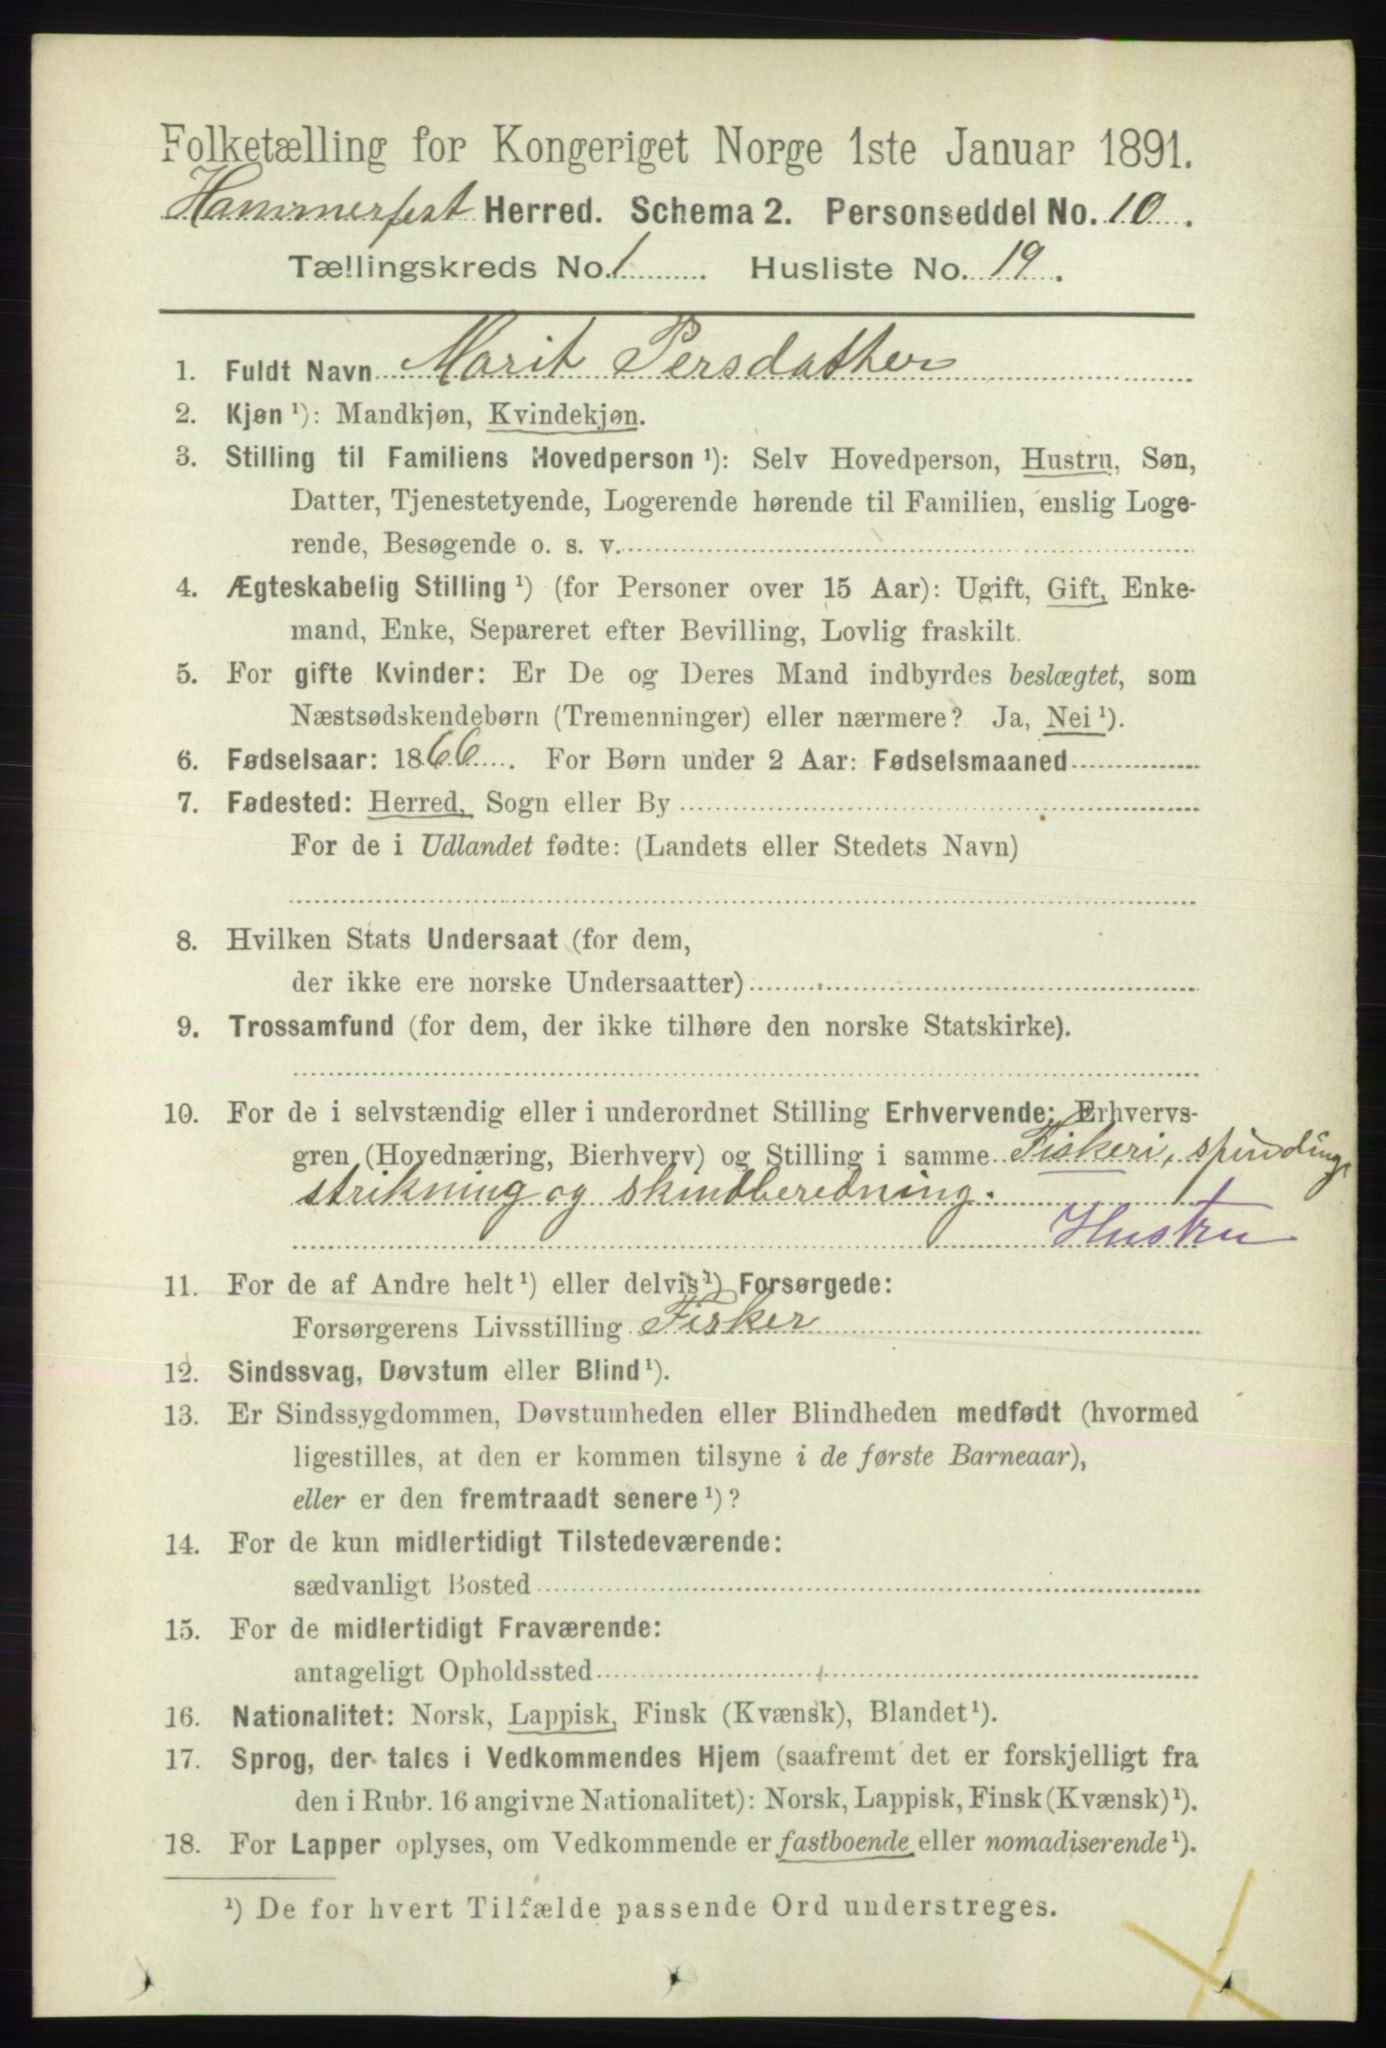 Folketælling for Kongeriget Norge 1ste Januar 1891.
Hammerfest Herred. Schema 2. Personseddel No. 10.
Tællingskreds No. 1. Husliste No. 19.
1. Fuldt Navn Marit Persdatter
2. Kjøn ¹): Mandkjøn, Kvindekjøn.
3. Stilling til Familiens Hovedperson ¹): Selv Hovedperson, Hustru, Søn,
Datter, Tjenestetyende, Logerende hørende til Familien, enslig Loge-
rende, Besøgende o. s. v.
4. Ægteskabelig Stilling ¹) (for Personer over 15 Aar): Ugift, Gift, Enke-
mand, Enke, Separeret efter Bevilling, Lovlig fraskilt.
5. For gifte Kvinder: Er De og Deres Mand indbyrdes beslægtet, som
Næstsødskendebørn (Tremenninger) eller nærmere? Ja, Nei ¹).
6. Fødselsaar: 1866. For Børn under 2 Aar: Fødselsmaaned
7. Fødested: Herred, Sogn eller By
For de i Udlandet fødte: (Landets eller Stedets Navn)
8. Hvilken Stats Undersaat (for dem,
der ikke ere norske Undersaatter)
9. Trossamfund (for dem, der ikke tilhøre den norske Statskirke).
10. For de i selvstændig eller i underordnet Stilling Erhvervende: Erhvervs-
gren (Hovednæring, Bierhverv) og Stilling i samme Fiskeri, spinding,
strikning og skindberedning.
Hustru
11. For de af Andre helt ¹) eller delvis ¹) Forsørgede:
Forsørgerens Livsstilling Fisker
12. Sindssvag, Døvstum eller Blind ¹).
13. Er Sindssygdommen, Døvstumheden eller Blindheden medfødt (hvormed
ligestilles, at den er kommen tilsyne i de første Barneaar),
eller er den fremtraadt senere ¹)?
14. For de kun midlertidigt Tilstedeværende:
sædvanligt Bosted
15. For de midlertidigt Fraværende:
antageligt Opholdssted
16. Nationalitet: Norsk, Lappisk, Finsk (Kvænsk), Blandet ¹).
17. Sprog, der tales i Vedkommendes Hjem (saafremt det er forskjelligt fra
den i Rubr. 16 angivne Nationalitet): Norsk, Lappisk, Finsk (Kvænsk) ¹).
18. For Lapper oplyses, om Vedkommende er fastboende eller nomadiserende ¹).
¹) De for hvert Tilfælde passende Ord understreges.